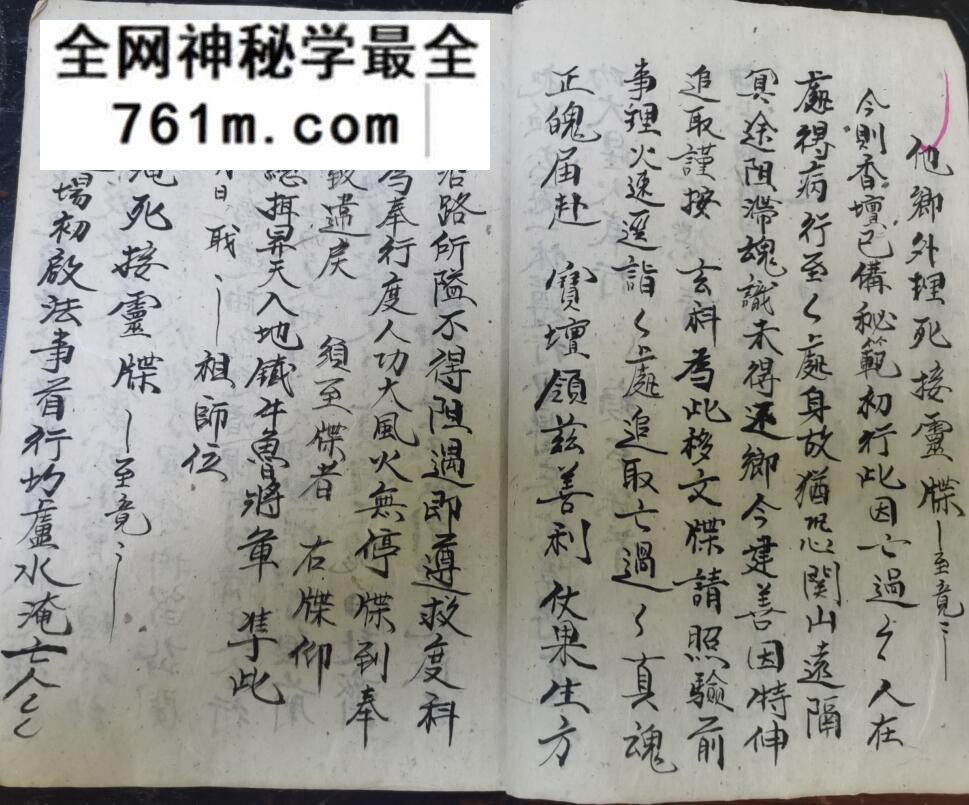 全网神秘学最全
761m.com
他鄉外理死接靈牒 至竟
今則香壇已備秘範初行此因亡過々人在
處得病行至々處身故猶恐関山遠隔
冥途阻滯魂識未得還鄉今建善因特伸
追取謹按 玄科為此移文牒請照驗前
事理火速逕詣々處追取亡過々真魂
正魄届赴 寶壇領兹善利仗果生方
路所隘不得阻遏即遵救度科
奉行度人功大風火無停牒到奉
遣戾 須至牒者 右牒仰
昇天入地鐵牛魯將軍 準此
日 職 祖師位
死接靈牒 至竟
場初啟法事首行坊廬水淹亡人々